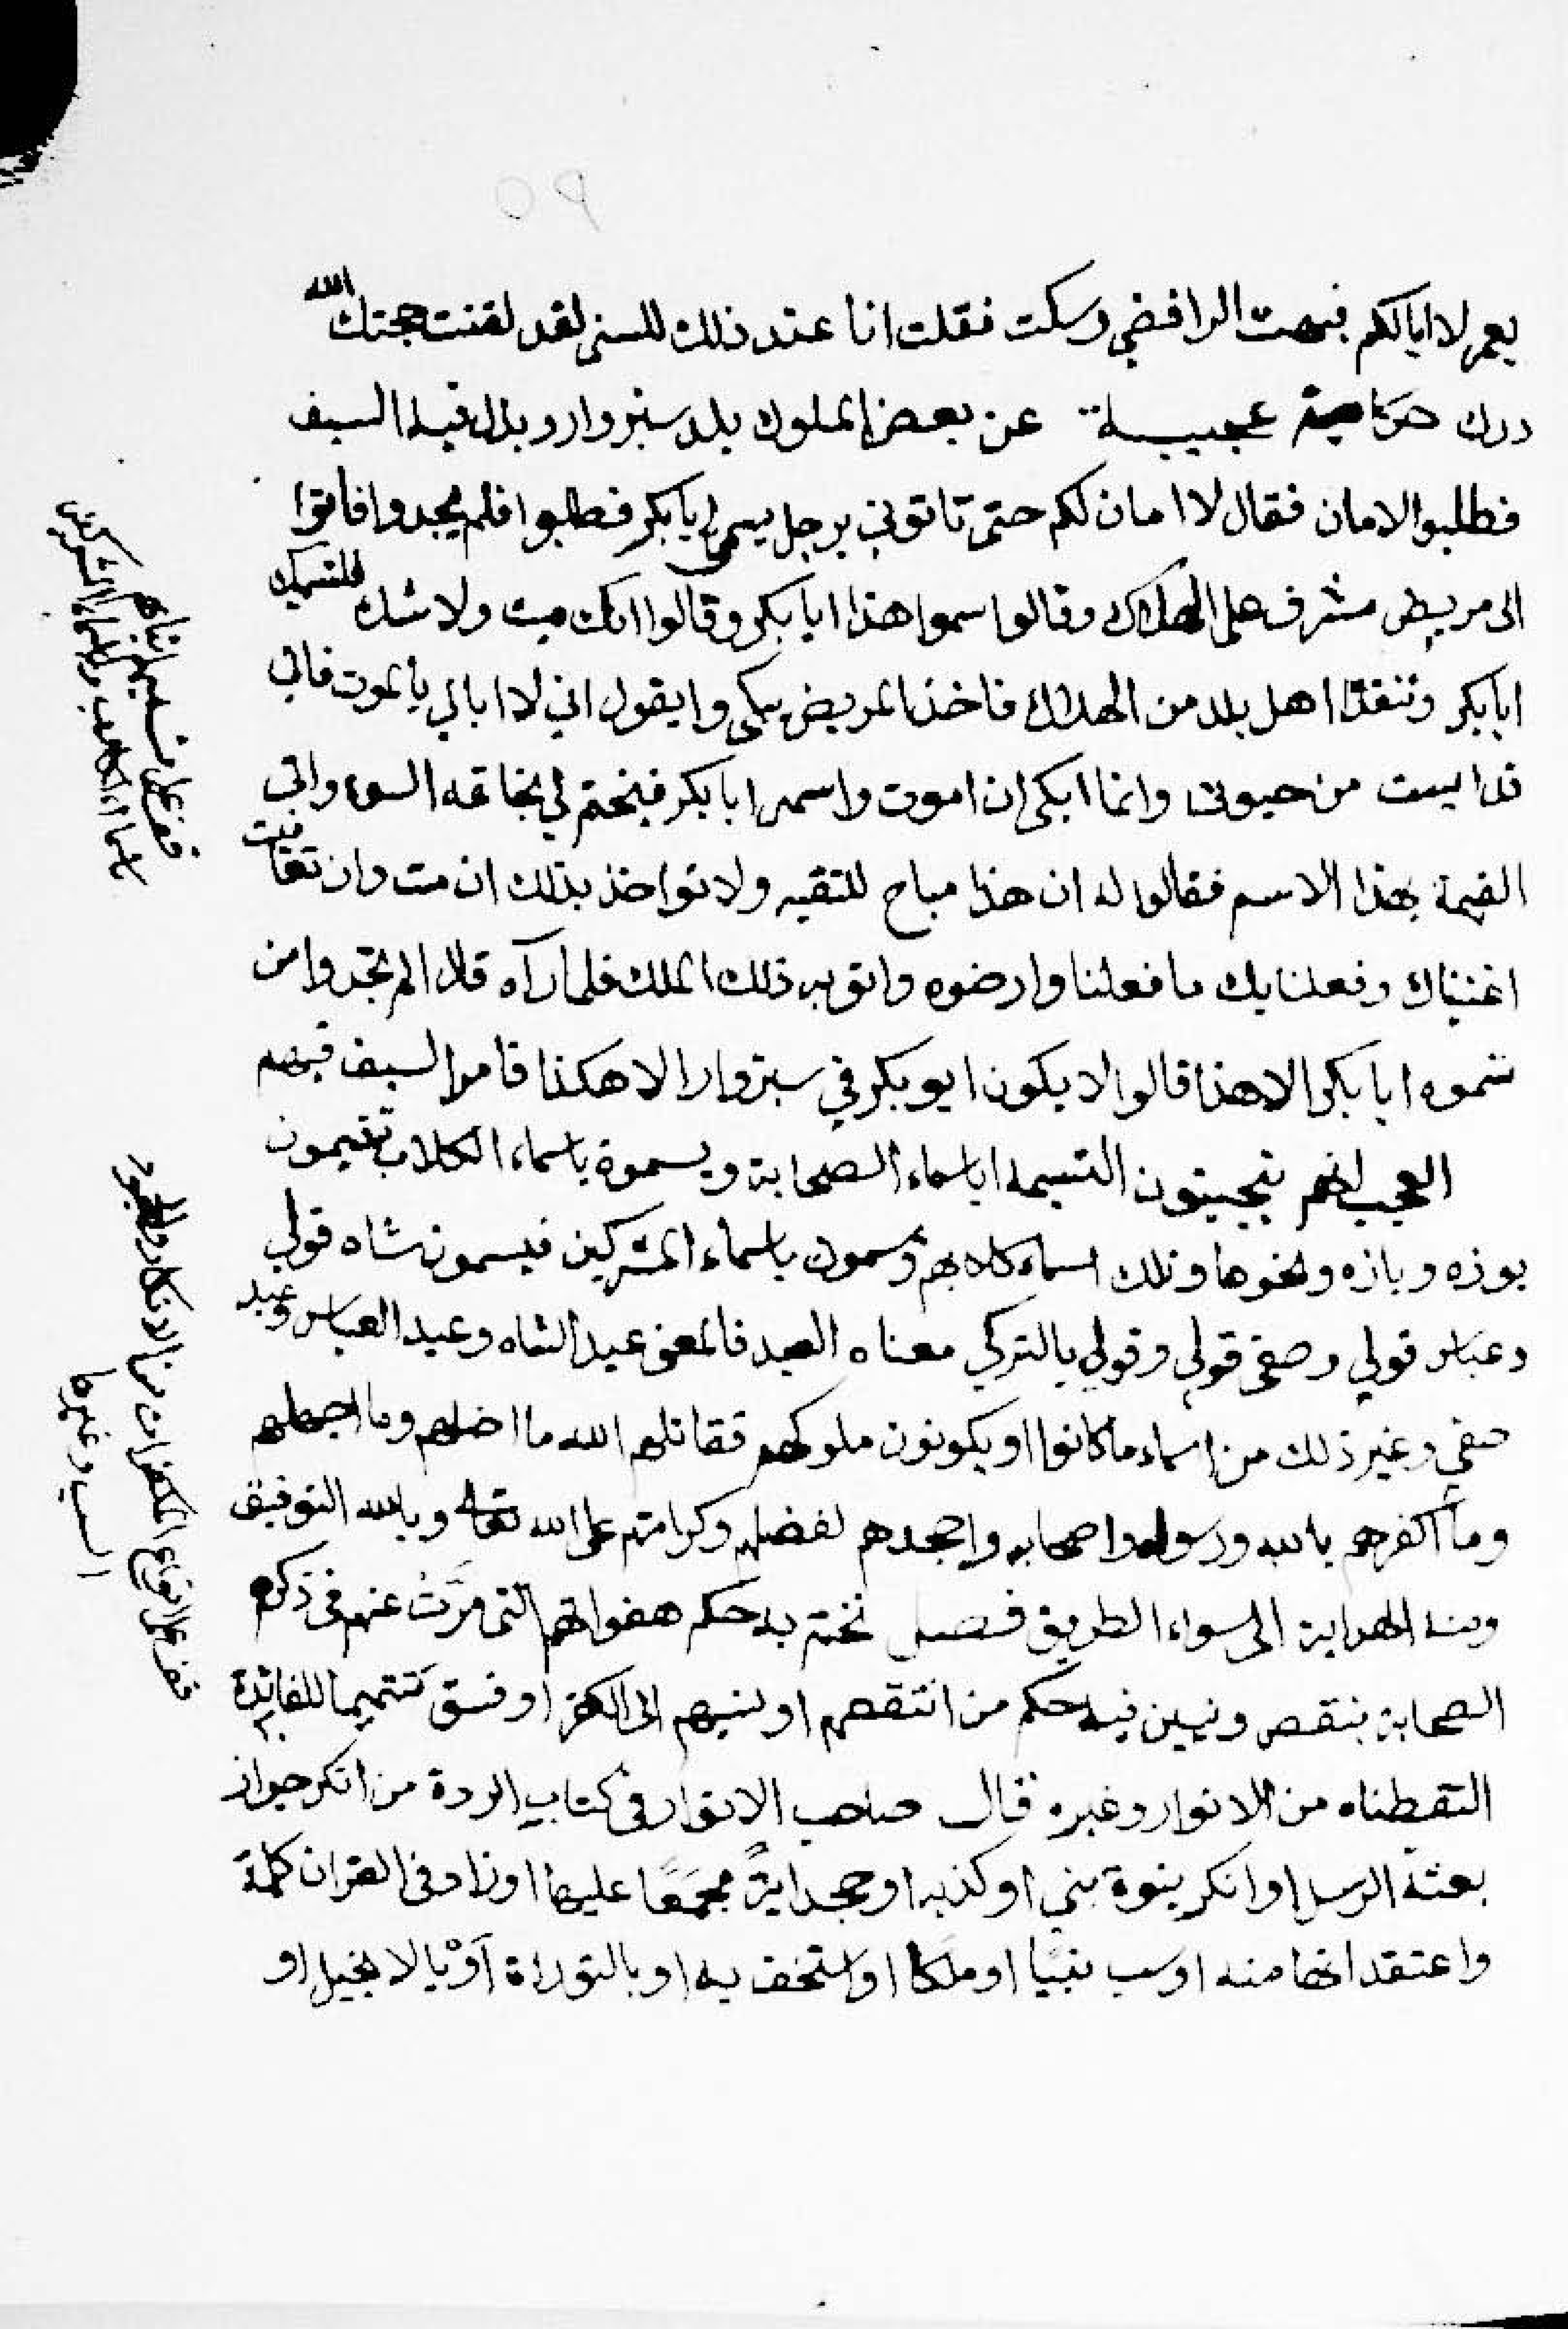 ٥٩
يعمر لا ابالكم فبهت الرافضي وسكت فقلت انا عند ذلك للسنى لقد لقنت حجتك الله
درك حكاية عجيبة عن بعض الملوك بلد سبزوار وبذل فيه السيف
فطلبوا الامان فقال لا امان لكم حتى تاتونى برجل يسمى ابابكر فطلبوا فلم يجدوا فأتوا
الى مريض مشرف على الهلاك وقالوا سموا هذا ابابكر وقالوا انك ميت ولا شك فلنسميك
ابابكر وتنقذ اهل بلد من الهلاك فاخذ المريض يبكى وا يقول انى لا ابالي بالموت فانى
قد ايست من حيوتى وانما ابكى ان اموت واسمى ابابكر فيختم لي بخاتمه السوء واتى
القيمة بهذا الاسم فقالوا له ان هذا مباح للتقيه ولا تواخذ بذلك ان مت وان تعافيت
اغنيناك وفعلنا بك ما فعلنا وارضوه واتو به ذلك الملك فلما رآه قلا الم تجدوا من
سموه ابابكر الا هذا قالوا لا يكون ابو بكر في سبزوار الا هكذا فامر السيف فيهم
العجب انهم يتجنبون التسيمه اباسماء الصحابة ويسموة باسماء الكلاب تقيمون
بوزه وبازه ونحوها وتلك اسماء كلابهم وسمون باسماء المشركين فيسمون شاه قولي
وعباس قولي وصفى قولي وقولي بالتركي معناه العبد فالمعنى عبد الشاه وعبد العباس وعبد
صفي وغير ذلك من اسماء ما كانوا او يكونون ملوكهم فقاتلهم الله ما اضلهم وما اجهلهم
وما اكفرهم بالله ورسوله واصحابه واجحدهم لفضلهم وكرامتهم على الله تعالى وبالله التوفيق
ومنه الهداية الى سواء الطريق فصل نختم به حكم هفواتهم التى مرَّت عنهم فى ذكرهم
الصحابة بنقص ونبين فيه حكم من انتقصهم او لنسبهم الى الكفر او فسق تتميما للفائدة
التقطناه من الانوار وغيره قال صاحب الانوار فى كتاب الردة من انكر جواز
بعثة الرسل او انكر بنوة نبي او كذبه او جحد ايةً مجمَعًا عليها او زاد فى القران كلمة
واعتقد انها منه او سب نبيًا او ملكا او استخف به او بالتوراة آوْ بالانجيل او
قف على تسميتهم ابناهم
باسماء الكلاب واسماء المشركين
قف على انواع المكفرات من الانكار والجحود
السب وغيرها